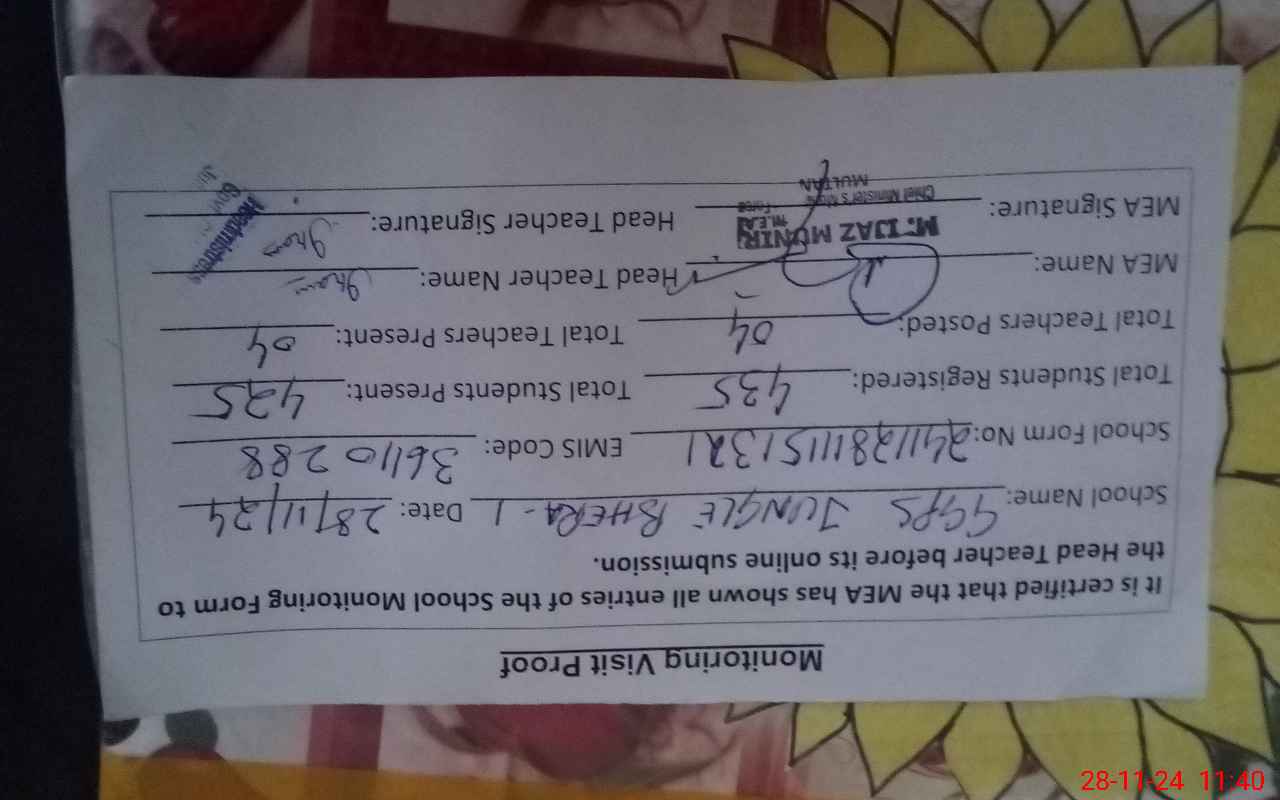 Monitoring Visit Proof
It is certified that the MEA has shown all entries of the School Monitoring Form to
the Head Teacher before its online submission.
School Name: GGPS JUNGLE BHERA-1 Date: 28/11/24
School Form No: 24112811151321 EMIS Code: 36110288
Total Students Registered: 435 Total Students Present: 425
Total Teachers Posted: 04 Total Teachers Present: 04
MEA Name: Head Teacher Name:
Mr. IJAZ MUNIR
MEA Signature: Head Teacher Signature:
Chief Minister's Force
MULTAN
Headmistress
Govt
28-11-24 11:40